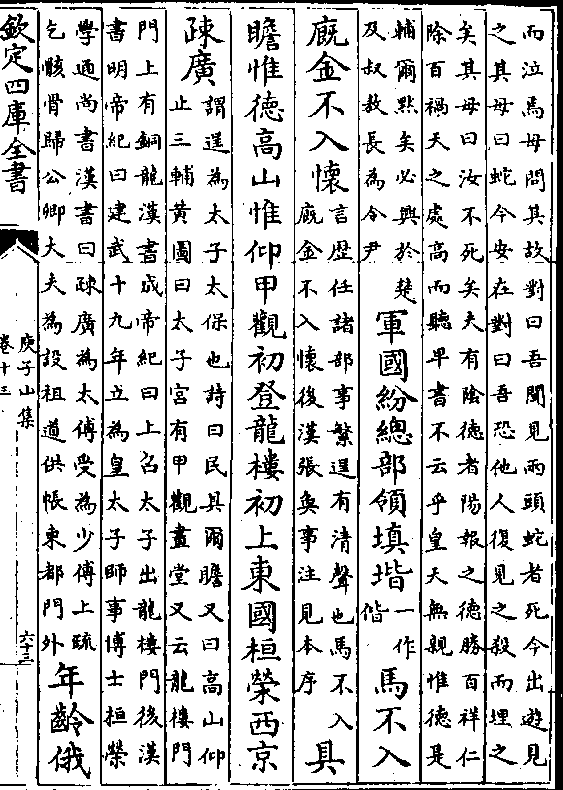 而泣焉母問其故對曰吾聞見兩頭蛇者死今出遊見
之其母曰蛇今安在對曰吾恐他人復見之殺而埋之
矣其母曰汝不死矣夫有陰德者陽報之德勝百祥仁
除百禍天之處高而聽卑書不云乎皇天無親惟德是
輔爾黙矣必興於楚
及叔敖長為令尹
軍國紛總部領填揩
一作
偕
馬不入
廐金不入懷
言歴任諸部事繁逞有清聲也馬不入
廐金不入懷後漢張奐事注見本序
具
瞻惟德高山惟仰甲觀初登龍樓初上東國桓榮西京
疎廣
謂逞為太子太保也詩曰民具爾瞻又曰高山仰
止三輔黃圖曰太子宮有甲觀畫堂又云龍樓門
門上有銅龍漢書成帝紀曰上召太子出龍樓門後漢
書明帝紀曰建武十九年立為皇太子師事博士桓榮
學通尚書漢書曰疎廣為太傅受為少傅上疏
乞骸骨歸公卿大夫為設祖道供帳東都門外
年齡俄
欽定四庫全書
庾子山集
卷十三
六十三